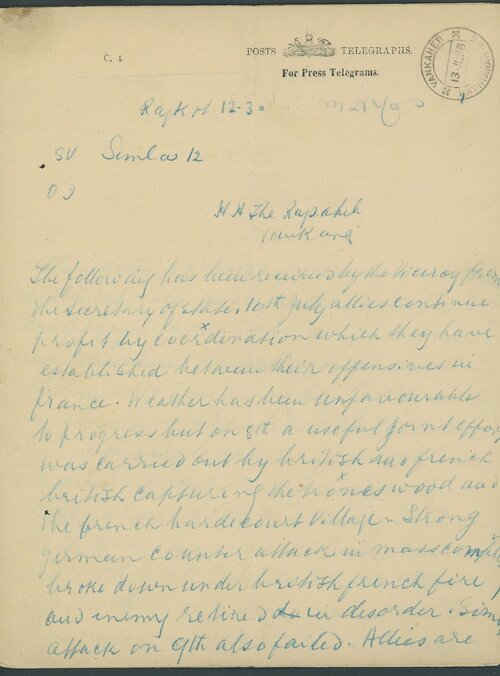 C. 4
POSTS TELEGRAPHS.
For Press Telegrams.
VANKANER
13 JL 16
Rajkot 12-30
SV Simla 12
09
H H The Rajsaheb
Vankaner
The following has been received by the Viceroy from
the Secretary of State. 10th July allies continue
profit by coordination which they have
established between their offensives in
france. Weather has been unfavourable
to progress but on 8th a useful joint effort
was carried out by british and french
british capturing the trones wood and
the french hardecourt village. Strong
german counter attack in mass
broke down under british french fire
and enemy retired in disorder.
attack on 9th also failed. Allies are